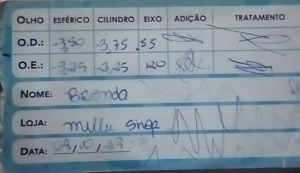 OLHO ESFÉRICO CILINDRO EIXO ADIÇÃO TRATAMENTO
O.D.: -3,50 -3,75 55
O.E.: -3,25 -3,25 120
NOME: Brenda
LOJA: Millu Sinop
DATA: 04,10,